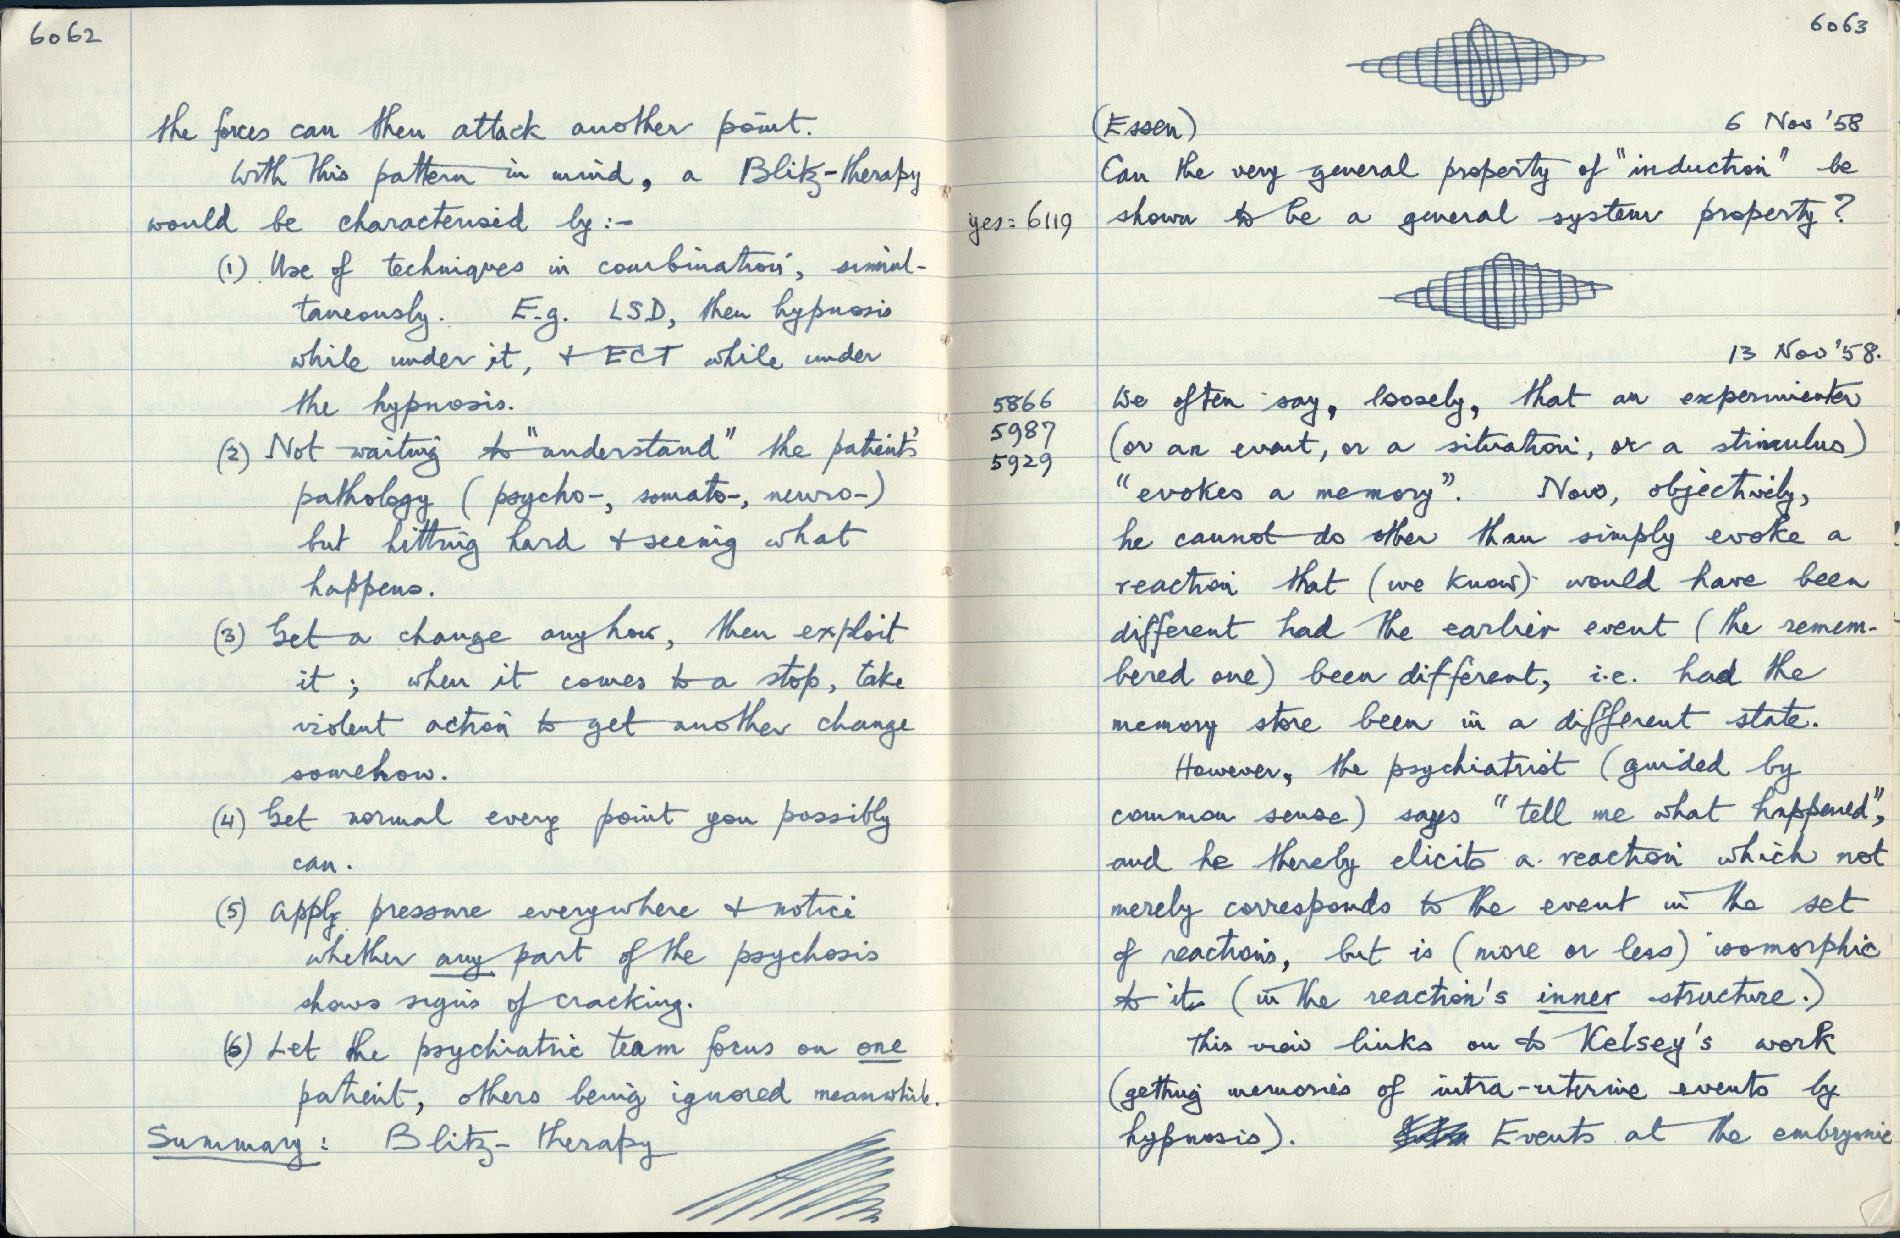 6062
the forces can then attack another point.
With this pattern in mind, a Blitz-therapy
would be characterised by:-
(1) Use of techniques in combination, simul-
taneously. E.g. LSD, then hypnosis
while under it, & ECT while under
the hypnosis.
(2) Not waiting to "understand" the patient's
pathology (psycho-, somato-, neuro-)
but hitting hard & seeing what
happens.
(3) Get a change anyhow, then exploit
it; when it comes to a stop, take
violent action to get another change
somehow.
(4) Get normal every point you possibly
can.
(5) Apply pressure everywhere & notice
whether any part of the psychosis
shows signs of cracking.
(6) Let the psychiatric team focus on one
patient, others being ignored meanwhile.
Summary: Blitz-therapy
6063
(Essen) 6 Nov '58
Can the very general property of "induction" be
yes = 6119 shown to be a general system property?
13 Nov '58.
5866 We often say, loosely, that an experimenter
5987 (or an event, or a situation, or a stimulus)
5929 "evokes a memory". Now, objectively,
he cannot do other than simply evoke a
reaction that (we know) would have been
different had the earlier event (the remem-
bered one) been different, i.e. had the
memory store been in a different state.
However, the psychiatrist (guided by
common sense) says "tell me what happened",
and he thereby elicits a reaction which not
merely corresponds to the event in the set
of reactions, but is (more or less) isomorphic
to it (in the reaction's inner structure.)
This view links on to Kelsey's work
(getting memories of intra-uterine events by
hypnosis). Events at the embryonic